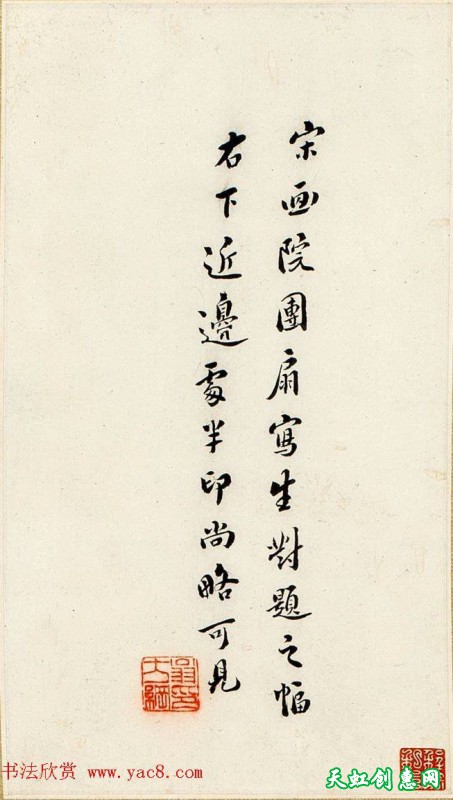 宋画院團扇寫生對題之幅
右下近邊處半印尚略可見
翁印大綱
书法欣赏 www.yac8.com
天虹创意网